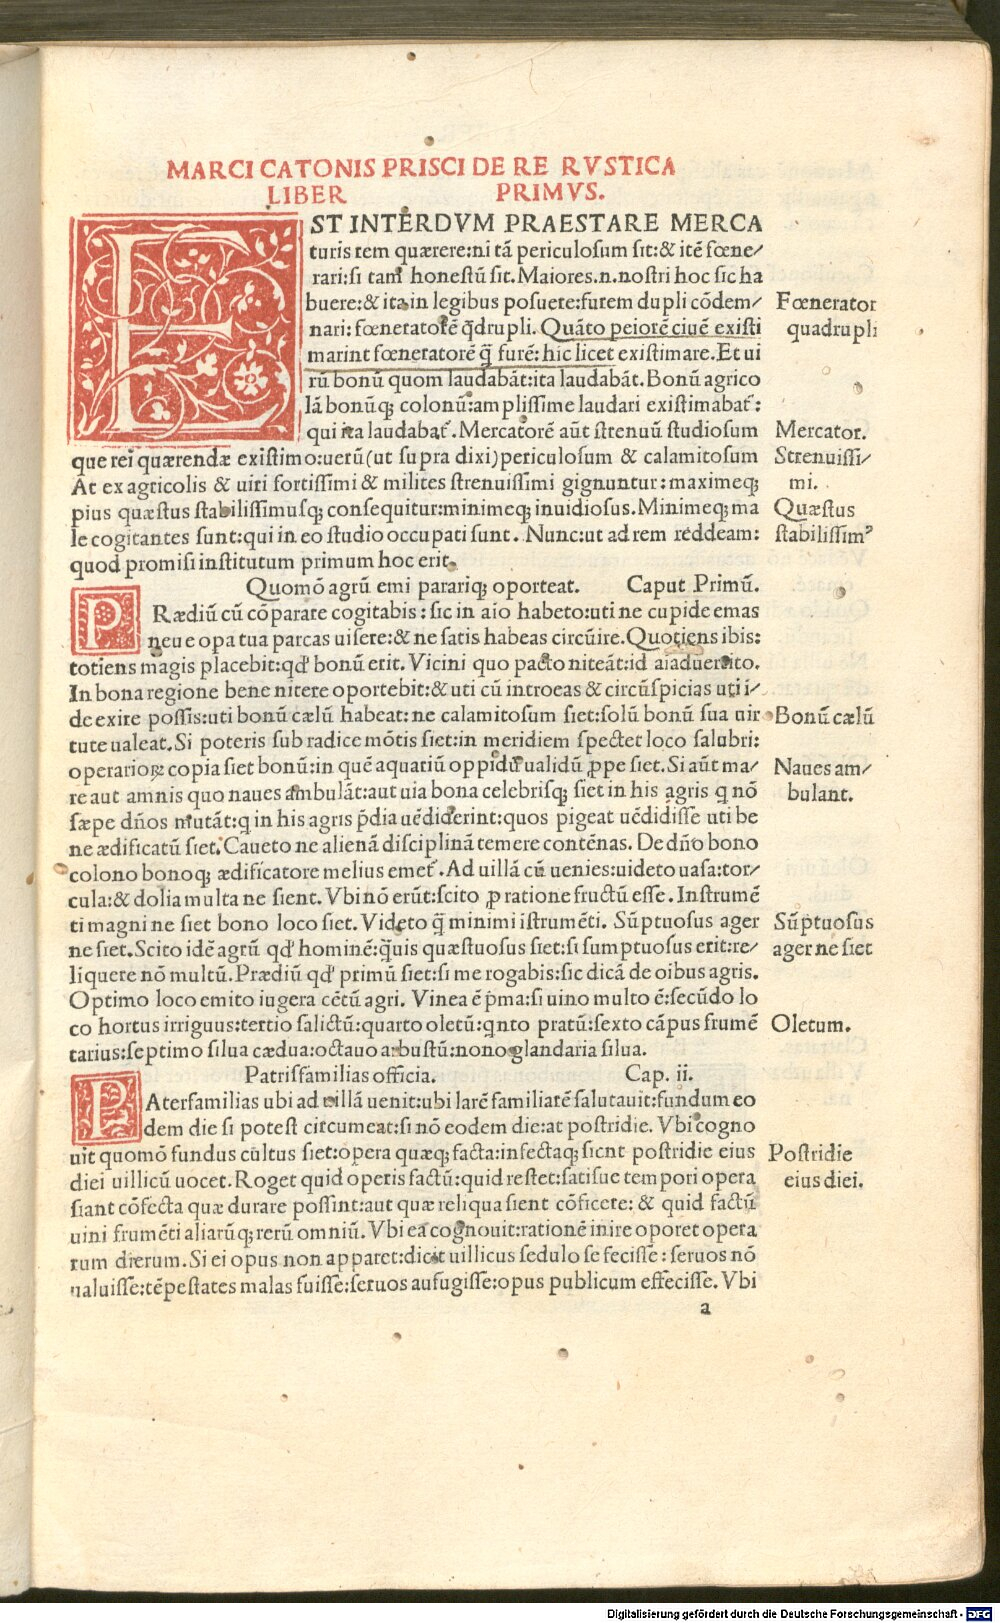 MARCI CATONIS PRISCI DE RE RVSTICA
LIBER PRIMVS.
EST INTERDVM PRAESTARE MERCA
turis rem quærere:ni tã periculosum sit:& itẽ fœne/
rari:si tam honestũ sit. Maiores.n.nostri hoc sic ha
buere:& ita in legibus posuere:furem dupli cõdem/
nari: fœneratorẽ q̃drupli. Quãto peiorẽ ciuẽ existi
marint fœneratorẽ q̃ furẽ: hic licet existimare. Et ui
rũ bonũ quom laudabãt:ita laudabãt. Bonũ agrico
lã bonũq; colonũ:amplissime laudari existimabat̃:
qui ita laudabat̃. Mercatorẽ aũt strenuũ studiosum
que rei quærendæ existimo:uerũ(ut supra dixi)periculosum & calamitosum
At ex agricolis & uiri fortissimi & milites strenuissimi gignuntur: maximeq;
pius quæstus stabilissimusq; consequitur:minimeq; inuidiosus. Minimeq; ma
le cogitantes sunt:qui in eo studio occupati sunt. Nunc:ut ad rem reddeam:
quod promisi institutum primum hoc erit.
Fœnerator
quadrupli
Mercator.
Strenuissi/
mi.
Quæstus
stabilissimꝰ
Quomõ agrũ emi parariq; oporteat. Caput Primũ.
PRædiũ cũ cõparare cogitabis: sic in aio habeto:uti ne cupide emas
neue opa tua parcas uisere:& ne satis habeas circũire. Quotiens ibis:
totiens magis placebit:qd' bonũ erit. Vicini quo pacto niteãt:id aiaduertito.
In bona regione bene nitere oportebit:& uti cũ introeas & circũspicias uti i/
de exire possis:uti bonũ cælũ habeat: ne calamitosum siet:solũ bonũ sua uir
tute ualeat. Si poteris sub radice mõtis siet:in meridiem spectet loco salubri:
operarioꝝ copia siet bonũ:in quẽ aquariũ oppidũ ualidũ ꝓpe siet. Si aũt ma/
re aut amnis quo naues ambulãt:aut uia bona celebrisq; siet in his agris q nõ
sæpe dños mutãt:q in his agris p̃dia uẽdiderint:quos pigeat uẽdidisse uti be
ne ædificatũ siet. Caueto ne alienã disciplinã temere contẽnas. De dño bono
colono bonoq; ædificatore melius emet̃. Ad uillã cũ uenies:uideto uasa:tor/
cula:& dolia multa ne sient. Vbi nõ erũt:scito ꝓ ratione fructũ esse. Instrumẽ
ti magni ne siet bono loco siet. Videto q̃ minimi istrumẽti. Sũptuosus ager
ne siet. Scito idẽ agrũ qd' hominẽ:q̃uis quæstuosus siet:si sumptuosus erit:re/
liquere nõ multũ. Prædiũ qd' primũ siet:si me rogabis:sic dicã de oibus agris.
Optimo loco emito iugera cẽtũ agri. Vinea ẽ p̃ma:si uino multo ẽ:secũdo lo
co hortus irriguus:tertio salictũ:quarto oletũ:qnto pratũ:sexto cãpus frumẽ
tarius:septimo silua cædua:octauo arbustũ:nono glandaria silua.
Bonũ cælũ
Naues am/
bulant.
Sũptuosus
ager ne siet
Oletum.
Patrisfamilias officia. Cap. ii.
PAterfamilias ubi ad uillã uenit:ubi larẽ familiarẽ salutauit:fundum eo
dem die si potest circumeat:si nõ eodem die:at postridie. Vbi cogno
uit quomõ fundus cultus siet:opera quæq; facta:infectaq; sient postridie eius
diei uillicũ uocet. Roget quid operis factũ:quid restet:satisue tempori opera
siant cõfecta quæ durare possint:aut quæ reliqua sient cõficere: & quid factũ
uini frumẽti aliarũq;rerũ omniũ. Vbi ea cognouit:rationẽ inire oporet opera
rum dierum. Si ei opus non apparet:dicit uillicus sedulo se fecisse: seruos nõ
ualuisse:tẽpestates malas fuisse:seruos aufugisse:opus publicum effecisse. Vbi
Postridie
eius diei.
a
Digitalisierung gefördert durch die Deutsche Forschungsgemeinschaft - DFG